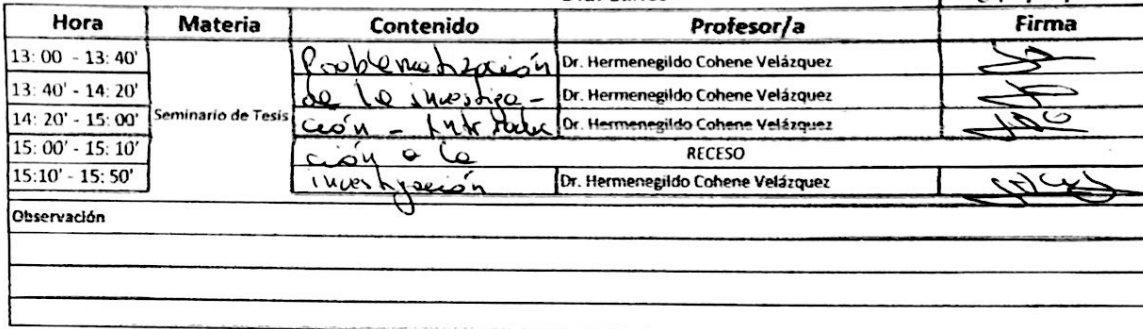 Hora Materia Contenido Profesor/a Firma
13: 00 - 13: 40' Problematización Dr. Hermenegildo Cohene Velázquez
13: 40' - 14: 20' de la investiga- Dr. Hermenegildo Cohene Velázquez
14: 20' - 15: 00' Seminario de Tesis ción - Introduc Dr. Hermenegildo Cohene Velázquez
15: 00' - 15: 10' ción a la RECESO
15:10' - 15: 50' investigación Dr. Hermenegildo Cohene Velázquez
Observación